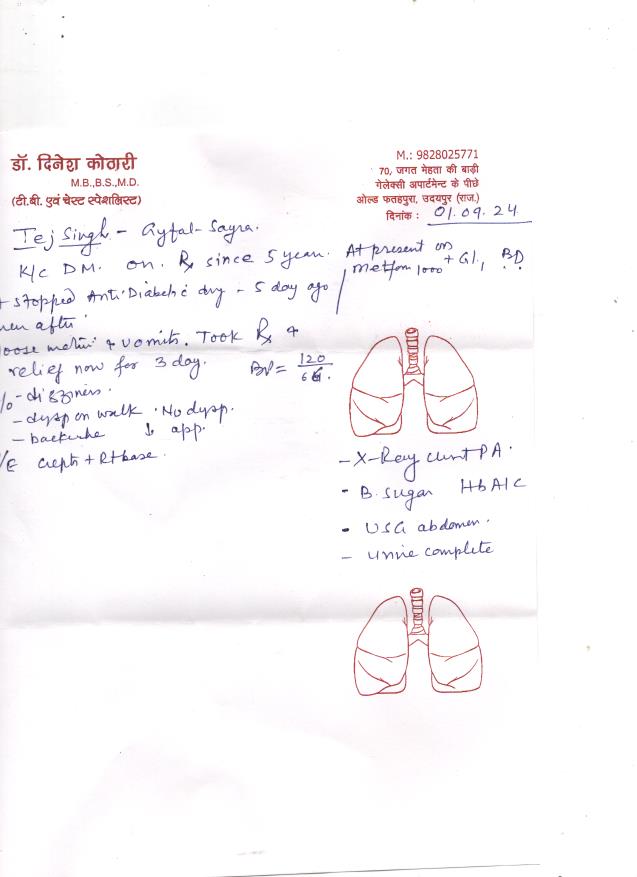 डॉ. दिनेश कोठारी
M.B.,B.S.,M.D.
(टी.बी. एवं चेस्ट स्पेशलिस्ट)
M.: 9828025771
70, जगत मेहता की बाड़ी
गेलेक्सी अपार्टमेन्ट के पीछे
ओल्ड फतहपुरा, उदयपुर (राज.)
दिनांक : 01.09.24
Tej Singh - Sayra.
K/c DM. on Rx since 5 year. At present on
Metfom 1000 + Gl, BD
stopped Anti Diabetic drug - 5 day ago
after
vomits. Took Rx &
relief now for 3 day. BP = 120/66.
- dizziness.
- dysp on walk. No dysp.
- backache ↓ app.
crepts + Rt base.
- X-Ray chest PA.
- B. Sugar HbA1C
- USG abdomen.
- Urine complete